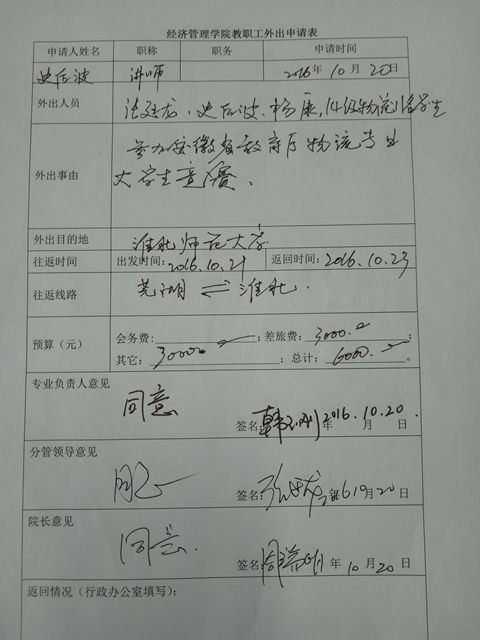 经济管理学院教职工外出申请表
申请人姓名 职称 职务 申请时间
史后波 讲师 2016年10月20日
外出人员 张廷龙、史后波、杨康、14级物流
外出事由 参加安徽省教育厅物流专业
大学生竞赛、
外出目的地 淮北师范大学
往返时间 出发时间:2016.10.21 返回时间:2016.10.23
往返线路 芜湖⇌淮北.
预算（元） 会务费: ;差旅费: 3000. ;
其它: 3000 ;总计: 6000. 。
专业负责人意见
同意
签名: 2016.10.20. 年 月 日
分管领导意见
同意
签名: 10月20日
院长意见
同意.
签名: 年10月20日
返回情况（行政办公室填写）: